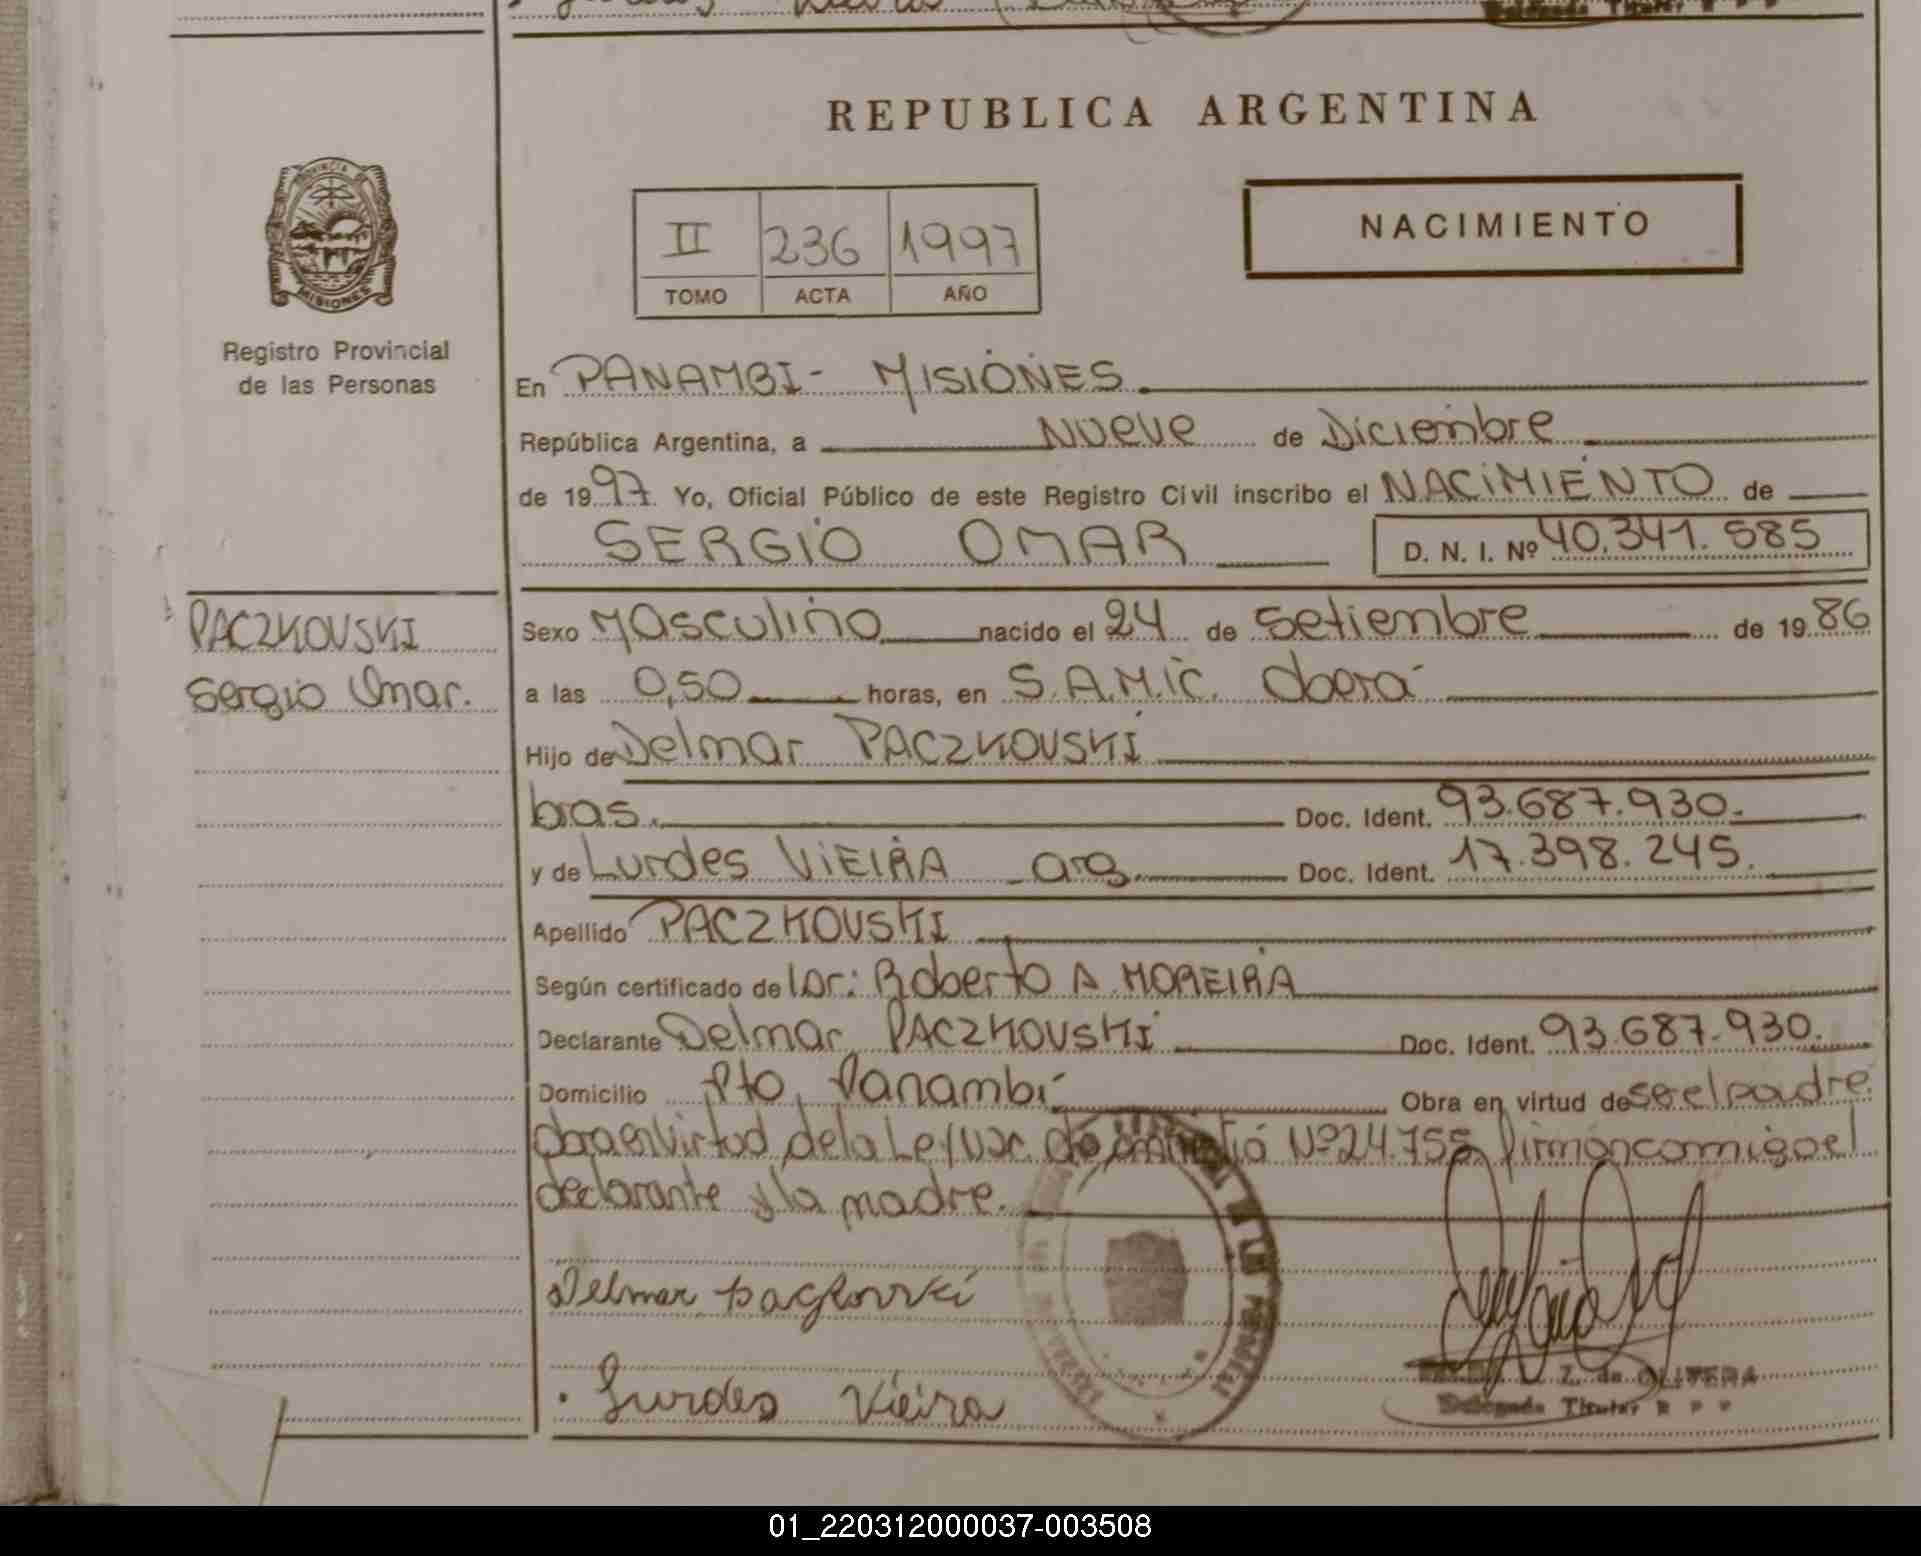 REPUBLICA ARGENTINA
PROVINCIA DE
MISIONES
Registro Provincial
de las Personas
II 236 1997
TOMO ACTA AÑO
NACIMIENTO
En PANAMBI - MISIONES
República Argentina, a Nueve de Diciembre
de 1997. Yo, Oficial Público de este Registro Civil inscribo el NACIMIENTO de
SERGIO OMAR D. N. I. Nº 40.341.585
PACZKOVSKI
Sergio Omar.
Sexo Masculino nacido el 24 de Setiembre de 1986
a las 0,50 horas, en S.A.M.i.C. Oberá
Hijo de Delmar PACZKOVSKI
bras. Doc. Ident. 93.687.930.
y de Lurdes VIEIRA arg. Doc. Ident. 17.398.245.
Apellido PACZKOVSKI
Según certificado de Dr: Roberto A MOREIRA
Declarante Delmar PACZKOVSKI Doc. Ident. 93.687.930.
Domicilio Pto Panambí Obra en virtud de ser el padre.
obra en virtud de la Ley Nac. de Nº 24.755. Firman conmigo el
declarante y la madre.
Delmar
Lurdes Vieira
Z. de OLIVERA
Delegada Titular R P P
01_220312000037-003508